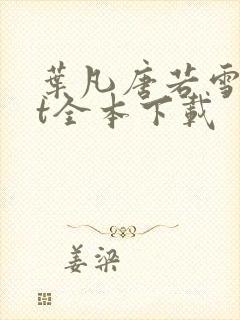 葉凡唐若雪
t全本下載
姜梁